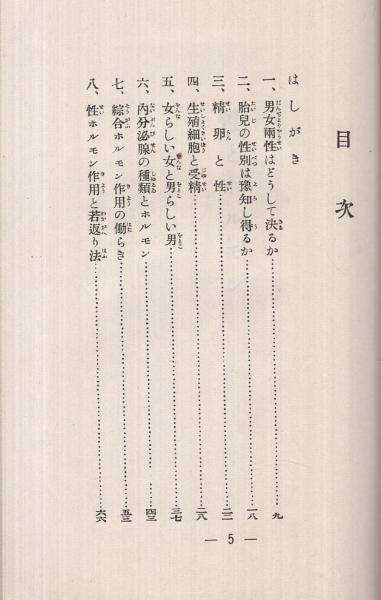 目次
はしがき
一、男女兩性はどうして決るか……九
二、胎兒の性別は豫知し得るか……一八
三、精卵と性……二二
四、生殖細胞と受精……二八
五、女らしい女と男らしい男……三七
六、内分泌腺の種類とホルモン……四三
七、綜合ホルモン作用の働らき……五三
八、性ホルモン作用と若返り法……六六
— 5 —